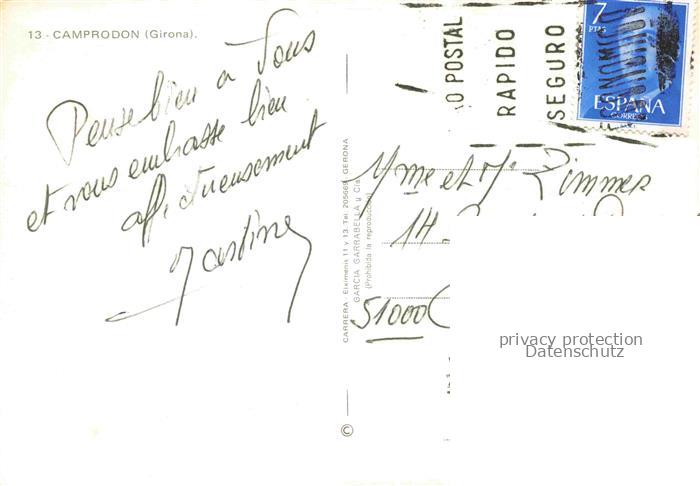 13 - CAMPRODON (Girona).
Pense bien a Vous
et vous embrasse bien
affectueusement
Martine
CARRERA - Eiximenis 11 y 13. Tel. 205669. GERONA
GARCIA GARRABELLA y Cía.
(Prohibida la reproducción)
©
O POSTAL
RAPIDO
SEGURO
7
PTAS
ESPAÑA
CORREOS
Mme et Mr Zimmer
14
51000
privacy protection
Datenschutz